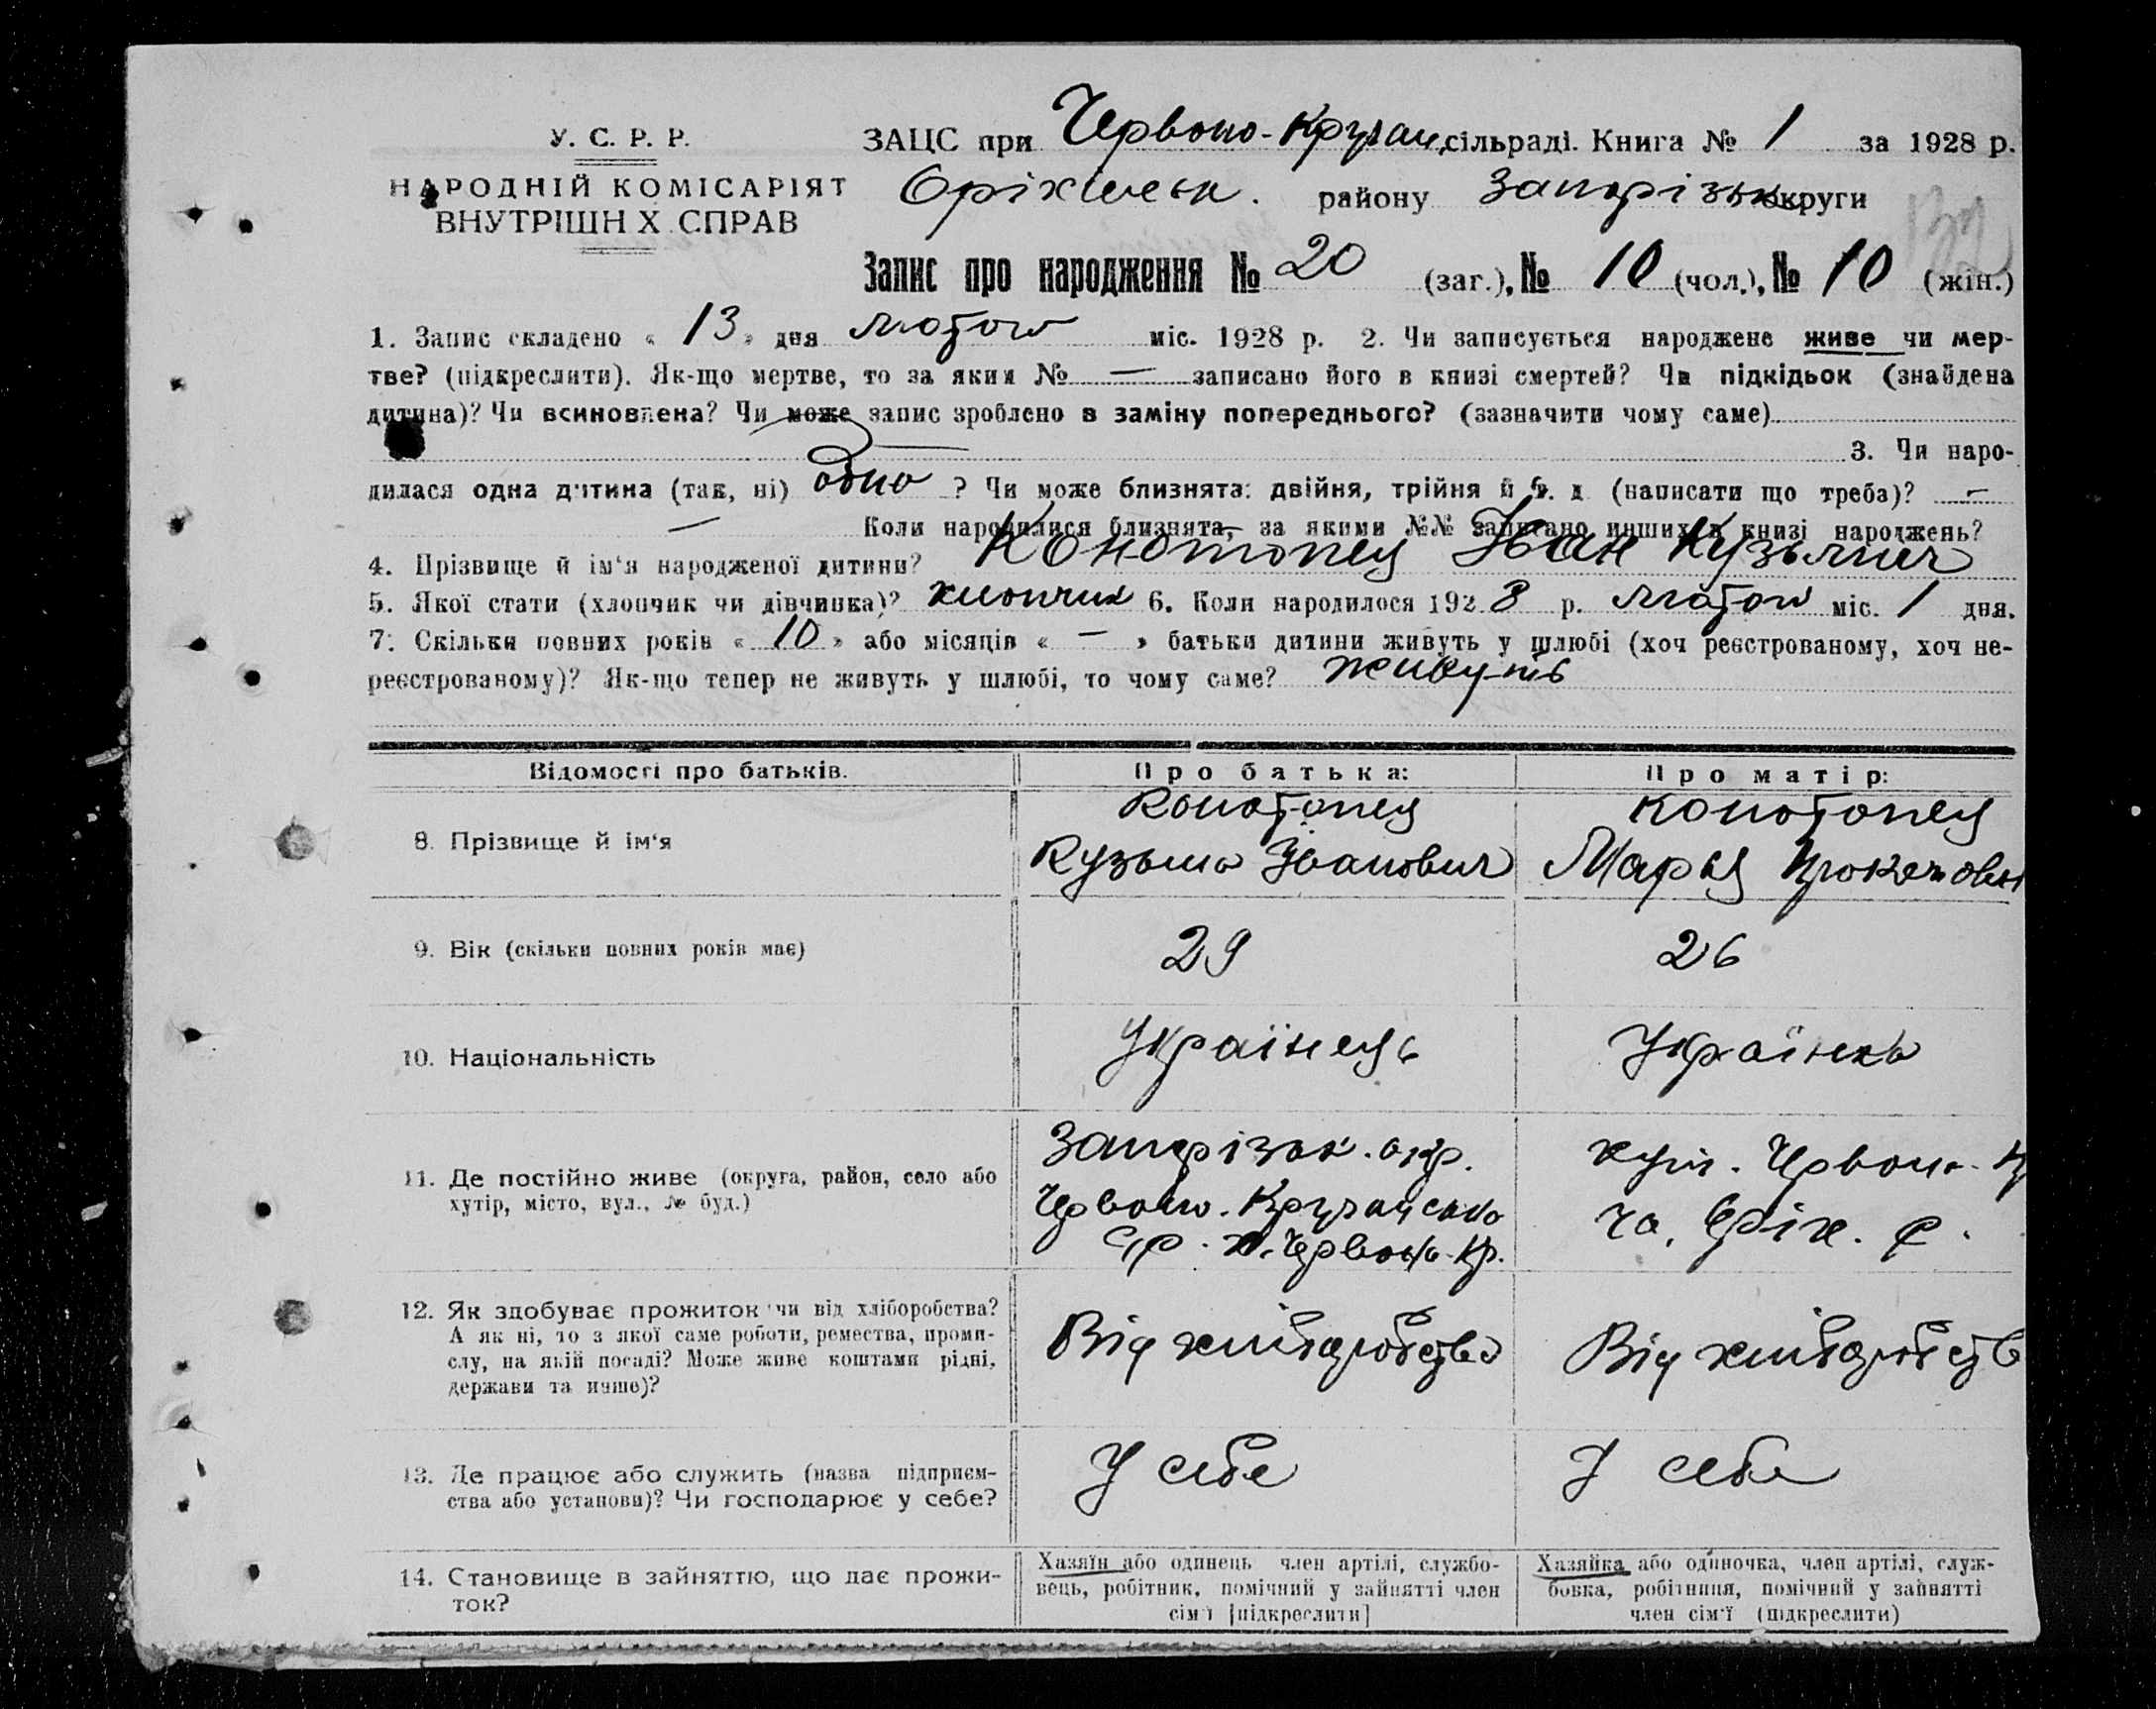 У. С. Р. Р.
НАРОДНІЙ КОМІСАРІЯТ
ВНУТРІШН Х СПРАВ
ЗАЦС при Червоно-Кручан. сільраді. Книга № 1 за 1928 р.
Оріхівськ. району Запорізьк округи
Запис про народження № 20 (заг.), № 10 (чол.), № 10 (жін.)
1. Запис складено « 13 » дня лютого міс. 1928 р. 2. Чи записується народжене живе чи мер-
тве? (підкреслити). Як-що мертве, то за яким № — записано його в книзі смертей? Чи підкідьок (знайдена
дитина)? Чи всиновлена? Чи може запис зроблено в заміну попереднього? (зазначити чому саме)
3. Чи наро-
дилася одна дитина (так, ні) одно ? Чи може близнята: двійня, трійня й т. д (написати що треба)? —
— Коли народилися близнята, за якими №№ записано инших в книзі народжень?
4. Прізвище й ім'я народженої дитини? Конотопец Іван Кузьмич
5. Якої стати (хлопчик чи дівчинка)? хлопчик 6. Коли народилося 1928 р. лютого міс. 1 дня.
7. Скільки повних років « 10 » або місяців « — » батьки дитини живуть у шлюбі (хоч реєстрованому, хоч не-
реєстрованому)? Як-що тепер не живуть у шлюбі, то чому саме? живуть
Відомості про батьків. Про батька: Про матір:
8. Прізвище й ім'я
Конотопец
Кузьма Іванович
Конотопец
Марья
9. Вік (скільки повних років має) 29 26
10. Національність Українець Українка
11. Де постійно живе (округа, район, село або
хутір, місто, вул., № буд.)
Запорізьк. окр.
Червоно. Кручанська
с/р. х. Червоно-Кр.
Червоно-
Оріх. р.
12. Як здобуває прожиток чи від хліборобства?
А як ні, то з якої саме роботи, ремества, проми-
слу, на якій посаді? Може живе коштами рідні,
держави та инше)?
Від хліборобства
Від хліборобств
13. Де працює або служить (назва підприєм-
ства або установи)? Чи господарює у себе?
У себе
У себе
14. Становище в зайняттю, що дає прожи-
ток?
Хазяїн або одинець член артілі, службо-
вець, робітник, помічний у зайнятті член
сім'ї [підкреслити]
Хазяйка або одиночка, член артілі, служ-
бовка, робітниця, помічний у зайнятті
член сім'ї (підкреслити)